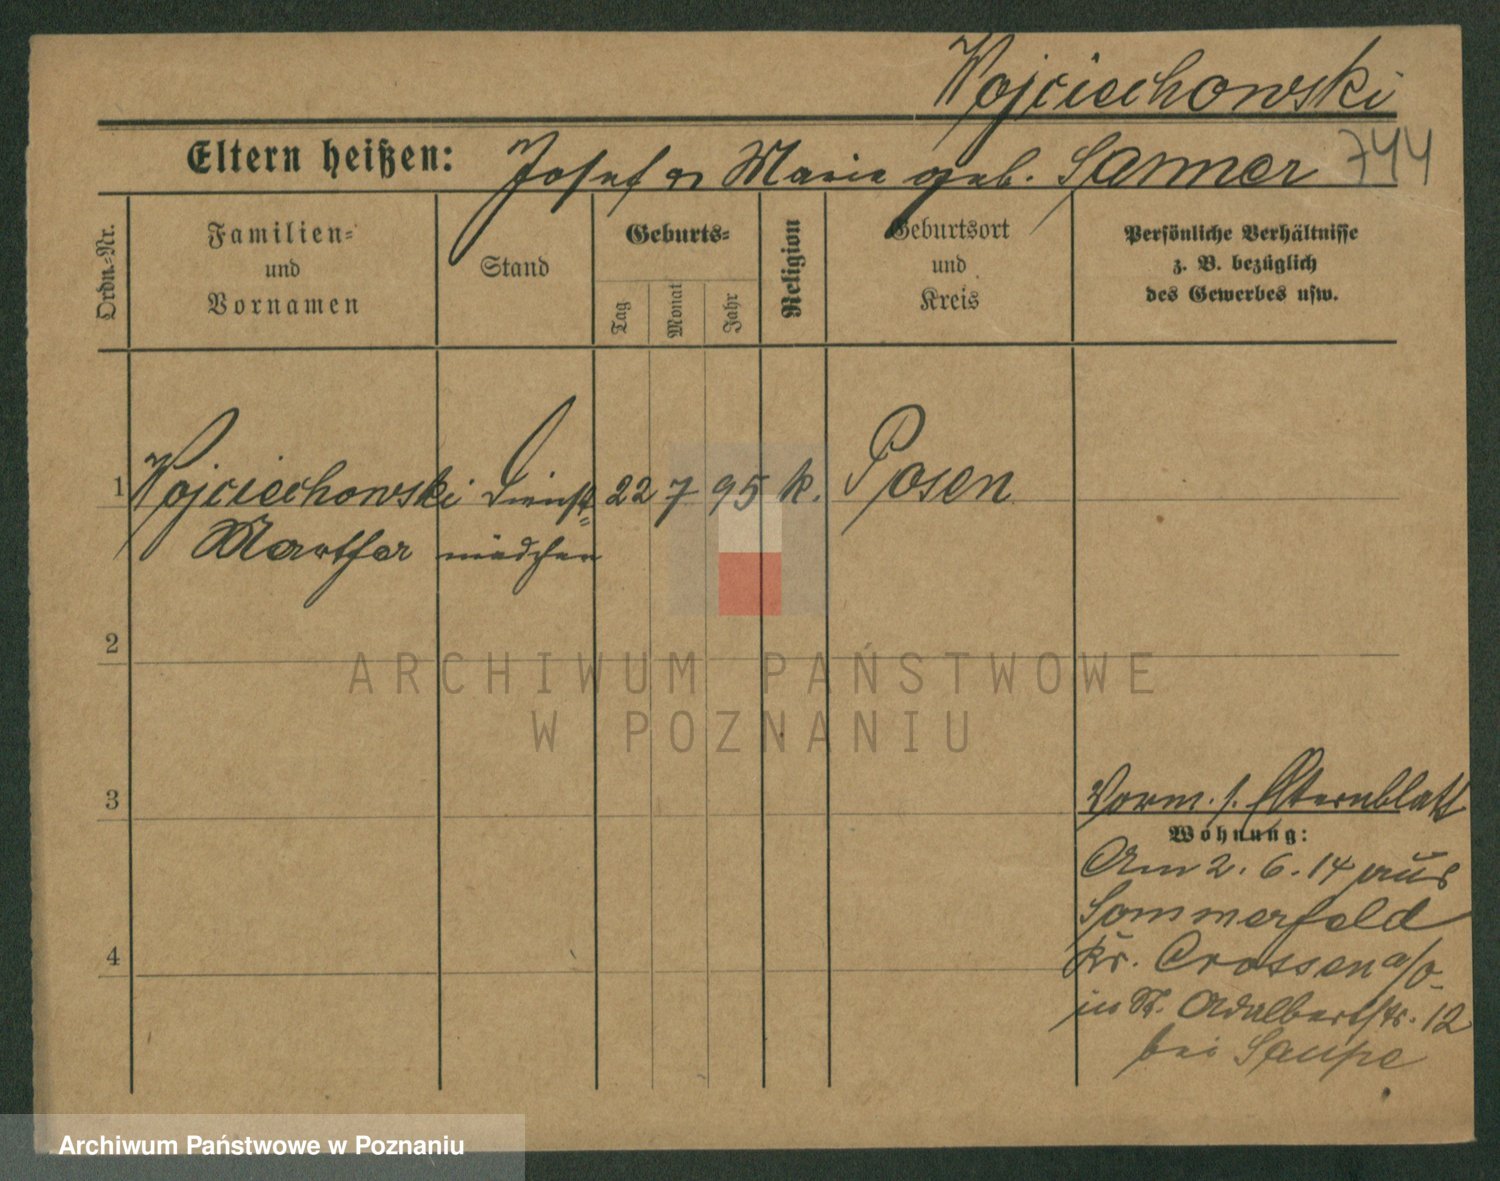 Wojciechowski
Eltern heißen: Josef u Marie geb. Sanner 744
Ordn.-Nr.
Familien-
und
Vornamen
Stand
Geburts-
Tag
Monat
Jahr
Religion
Geburtsort
und
Kreis
Persönliche Verhältnisse
z. B. bezüglich
des Gewerbes usw.
1 Wojciechowski Dienst= 22 7 95 k. Posen
Martha mädchen
2
ARCHIWUM PAŃSTWOWE
W POZNANIU
3
Vorm. s. Elternblatt
Wohnung:
Am 2. 6. 14 aus
Sommerfeld
Kr. Crossen a/O.
in St. Adalbertstr. 12
bei Saupe
4
Archiwum Państwowe w Poznaniu